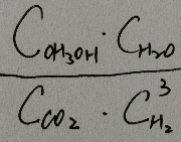 C_{CH3OH} · C_{H2O}
C_{CO2} · C_{H2}^3